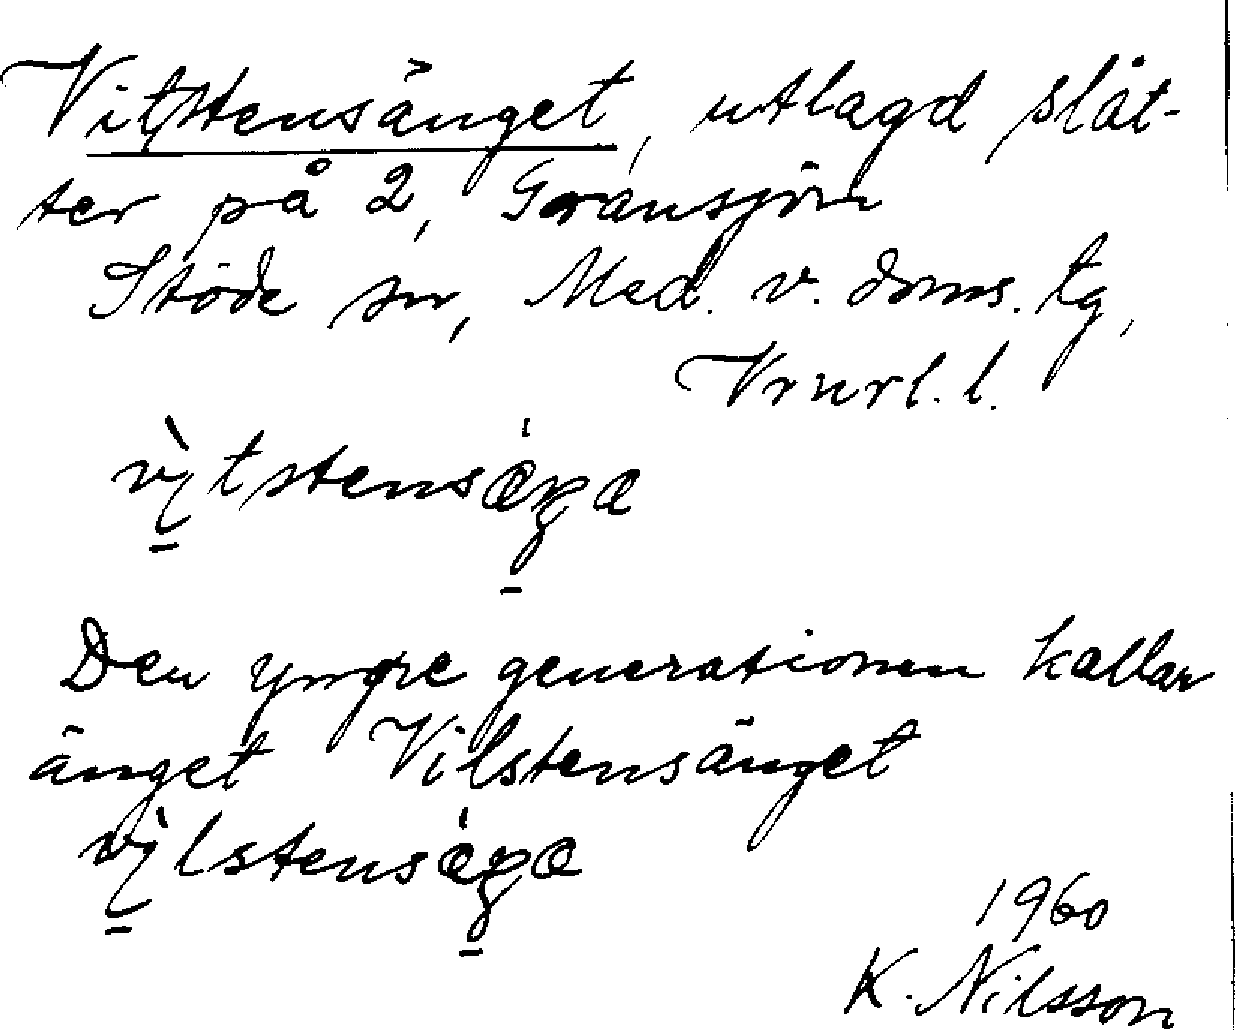 Vitstensänget, utlagd slåt-
ter på 2, Gransjön
Stöde sn, Med. v. doms. tg,
Vrnrl. l.
vi̠tstensæŋæ
Den yngre generationen kallar
änget Vilstensänget
vi̠lstensæŋæ
1960
K. Nilsson